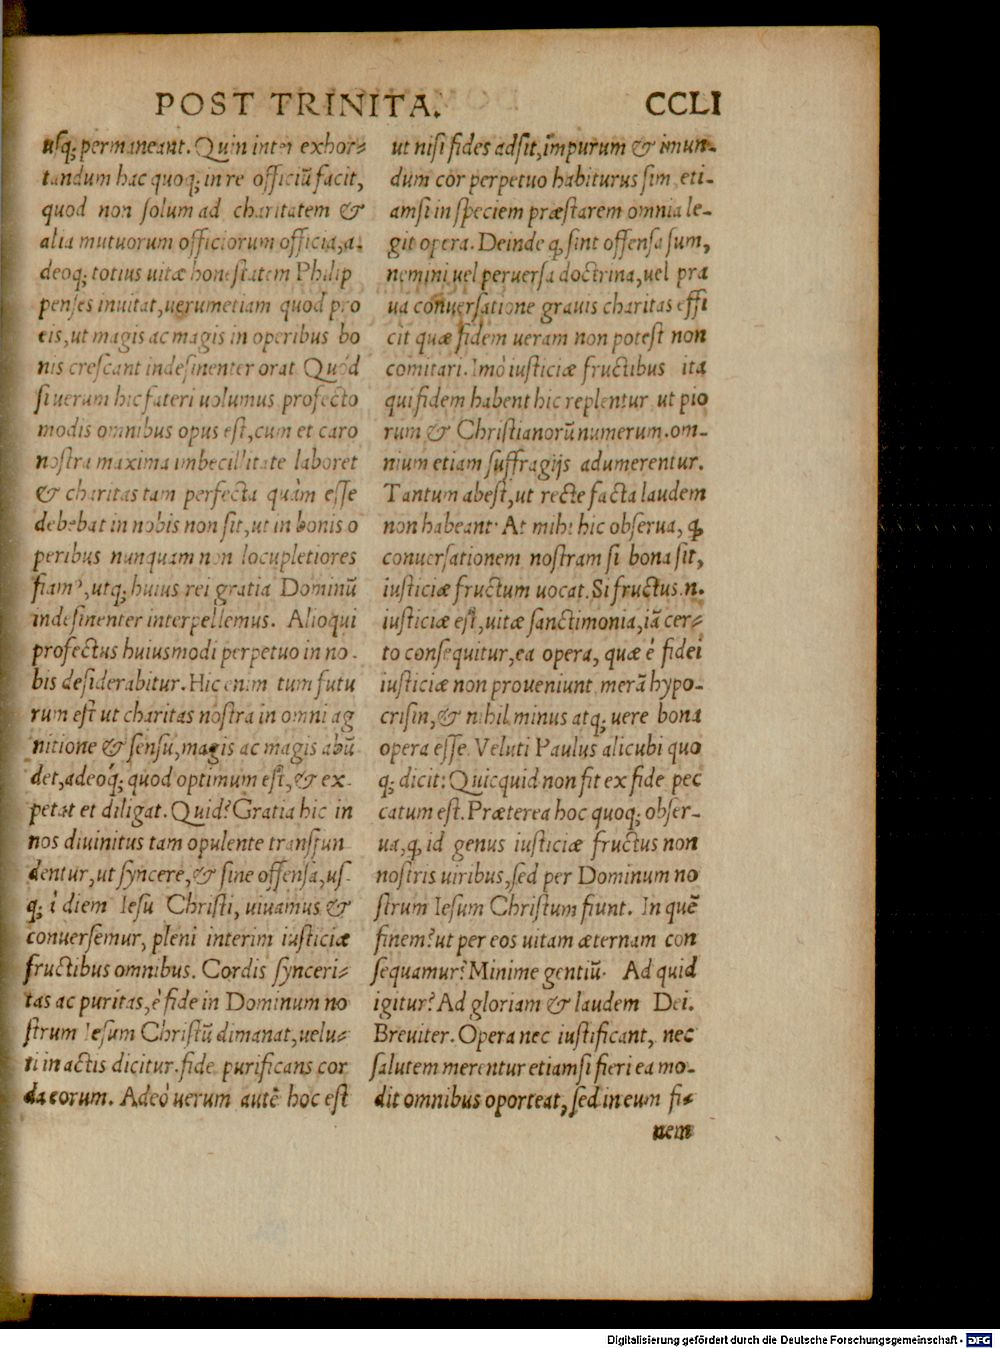 POST TRINITA. CCLI
usq; permaneant. Quin inter exhor⸗
tandum hac quoq; in re officiũ facit,
quod non solum ad charitatem &
alia mutuorum officiorum officia, a.
deoq; totius uitæ honestatem Philip
penses inuitat, uerumetiam quod pro
eis, ut magis ac magis in operibus bo
nis crescant indesinenter orat Quòd
si uerum hic fateri uolumus profecto
modis omnibus opus est, cum et caro
nostra maxima imbecillitate laboret
& charitas tam perfecta quàm esse
debebat in nobis non sit, ut in bonis o
peribus nunquam non locupletiores
fiamꝰ, utq; huius rei gratia Dominũ
indesinenter interpellemus. Alioqui
profectus huiusmodi perpetuo in no-
bis desiderabitur. Hic enim tum futu
rum est ut charitas nostra in omni ag
nitione & sensu, magis ac magis abũ
det, adeoq́; quod optimum est, & ex-
petat et diligat. Quid? Gratia hic in
nos diuinitus tam opulente transfun
dentur, ut syncere, & sine offensa, us-
q; ĩ diem Iesu Christi, uiuamus &
conuersemur, pleni interim iusticiæ
fructibus omnibus. Cordis synceri⸗
tas ac puritas, è fide in Dominum no
strum Iesum Christũ dimanat, uelu⸗
ti in actis dicitur. fide purificans cor
da eorum. Adeò uerum autẽ hoc est
ut nisi fides adsit, ĩmpurum & imun-
dum cor perpetuo habiturus sim, eti-
amsi in speciem præstarem omnia le-
git opera. Deinde ꝙ sint offensa sum,
nemini uel peruersa doctrina, uel pra
ua conuersatione grauis charitas effi
cit quæ fidem ueram non potest non
comitari. Imò iusticiæ fructibus ita
qui fidem habent hic replentur ut pio
rum & Christianorũ numerum. om-
nium etiam suffragijs adumerentur.
Tantum abest, ut recte facta laudem
non habeant. At mihi hic obserua, ꝙ
conuersationem nostram si bona sit,
iusticiæ fructum uocat. Si fructus .n.
iusticiæ est, uitæ sanctimonia, iã cer⸗
to consequitur, ea opera, quæ è fidei
iusticiæ non proueniunt merã hypo-
crisin, & nihil minus atq; uere bona
opera esse. Veluti Paulus alicubi quo
q; dicit: Quicquid non fit ex fide pec
catum est. Præterea hoc quoq; obser-
ua, ꝙ id genus iusticiæ fructus non
nostris uiribus, sed per Dominum no
strum Iesum Christum fiunt. In quẽ
finem? ut per eos uitam æternam con
sequamur? Minime gentiũ. Ad quid
igitur? Ad gloriam & laudem Dei.
Breuiter. Opera nec iustificant, nec
salutem merentur etiamsi fieri ea mo-
dit omnibus oporteat, sed in eum fi⸗
nem
Digitalisierung gefördert durch die Deutsche Forschungsgemeinschaft - DFG